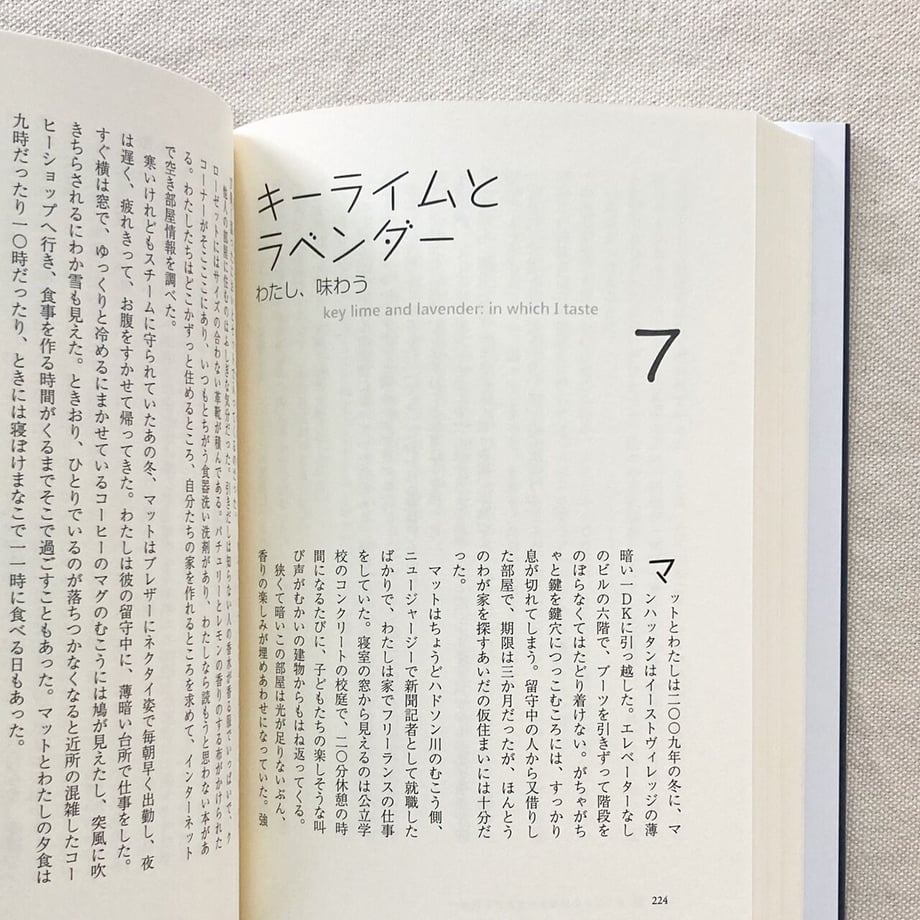 キーライムと
ラベンダー
わたし、味わう
key lime and lavender: in which I taste
7
マットとわたしは二〇〇九年の冬に、マ
ンハッタンはイーストヴィレッジの薄
暗い一DKに引っ越した。エレベーターなし
のビルの六階で、ブーツを引きずって階段を
のぼらなくてはたどり着けない。がちゃがち
ゃと鍵を鍵穴につっこむころには、すっかり
息が切れてしまう。留守中の人から又借りし
た部屋で、期限は三か月だったが、ほんとう
のわが家を探すあいだの仮住まいには十分だ
った。
マットはちょうどハドソン川のむこう側、
ニュージャージーで新聞記者として就職した
ばかりで、わたしは家でフリーランスの仕事
をしていた。寝室の窓から見えるのは公立学
校のコンクリートの校庭で、二〇分休憩の時
間になるたびに、子どもたちの楽しそうな叫
び声がむかいの建物からもはね返ってくる。
狭くて暗いこの部屋は光が足りないぶん、
香りの楽しみが埋めあわせになっていた。強
224
他人の部屋に住むのはふしぎな気分だった。引きだしは知らない人の香水が香る服でいっぱいで、ク
ローゼットにはサイズの合わない革靴が積んである。パチュリーとレモンの香りのする布がかけられた
コーナーがそこここにあり、いつもとちがう食器洗い洗剤があり、わたしなら読もうと思わない本があ
る。わたしたちはどこかずっと住めるところ、自分たちの家を作れるところを求めて、インターネット
で空き部屋情報を調べた。
寒いけれどもスチームに守られていたあの冬、マットはブレザーにネクタイ姿で毎朝早く出勤し、夜
は遅く、疲れきって、お腹をすかせて帰ってきた。わたしは彼の留守中に、薄暗い台所で仕事をした。
すぐ横は窓で、ゆっくりと冷めるにまかせているコーヒーのマグのむこうには鳩が見えたし、突風に吹
きちらされるにわか雪も見えた。ときおり、ひとりでいるのが落ちつかなくなると近所の混雑したコー
ヒーショップへ行き、食事を作る時間がくるまでそこで過ごすこともあった。マットとわたしの夕食は
九時だったり一〇時だったり、ときには寝ぼけまなこで一一時に食べる日もあった。